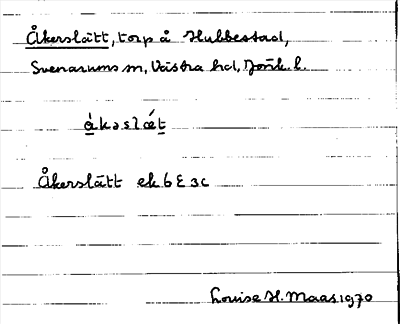 Åkerslätt, torp å Hubbestad,
Svenarums sn, Västra hd, Jönk. l.
åkəslǽt
Åkerslätt ek 6 E 3c
Louise H. Maas 1970